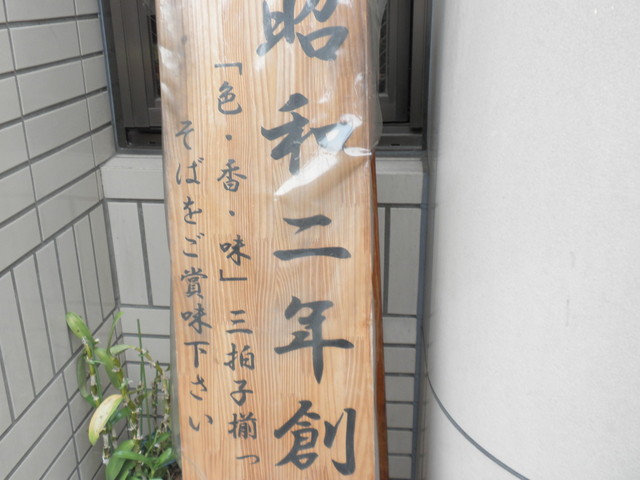 昭和二年創
「色・香・味」三拍子揃っ
そばをご賞味下さい